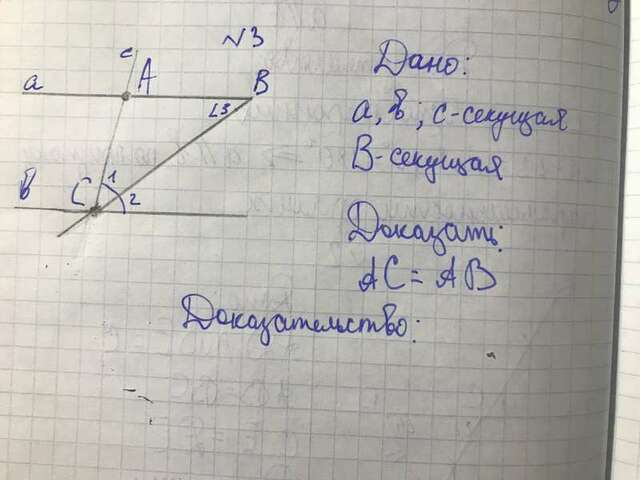 N3
c
a A B
∠3
в C 1
2
Дано:
a, в; c-секущая
B-секущая
Доказать:
AC = AB
Доказательство: